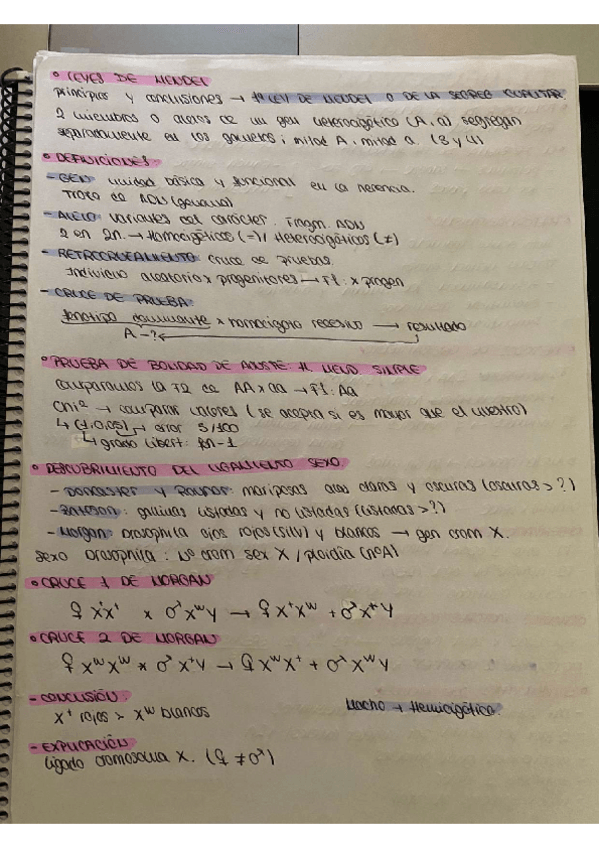 • LEYES DE MENDEL
principios y conclusiones → 1ª LEY DE MENDEL O DE LA SEGREG CUALITAT
2 miembros o alelos de un gen heterocigótico (A, a) segregan
separadamente en los gametos; mitad A, mitad a. (3 y 1)
• DEFINICIONES:
- GEN: unidad básica y funcional en la herencia.
Trozo de ADN (genoma)
- ALELO: variantes del carácter. Fragm. ADN
2 en 2n. → Homocigóticos (=) / Heterocigóticos (≠)
- RETROCRUZAMIENTO: cruce de pruebas.
Individuo aleatorio x progenitores → F1: x progen
- CRUCE DE PRUEBA:
fenotipo dominante x homocigoto recesivo → resultado
A -?
• PRUEBA DE BONDAD DE AJUSTE: H MEND SIMPLE
comparamos la F2 de AA x aa → F1: Aa
Chi² → comparar valores (se acepta si es mayor que el nuestro)
↳ (1,0,05) → error 5/100
↳ grado libert: fn-1
• DESCUBRIMIENTO DEL LIGAMIENTO SEXO.
- Doncaster y Raynor: mariposas alas claras y oscuras (oscuras > ?)
- Bateson: gallinas listadas y no listadas (listadas > ?)
- Morgan: Drosophila ojos rojos (silv) y blancos → gen crom X.
Sexo Drosophila: nº crom sex X / ploidía (nºA)
• CRUCE 1 DE MORGAN
♀ X⁺X⁺ x ♂ XʷY → ♀ X⁺Xʷ + ♂ X⁺Y
• CRUCE 2 DE MORGAN
♀ XʷXʷ x ♂ X⁺Y → ♀ XʷX⁺ + ♂ XʷY
- CONCLUSIÓN:
X⁺ rojos > Xʷ blancos
Macho → Hemicigótico.
- EXPLICACIÓN
Ligado cromosoma X. (♀ ≠ ♂)